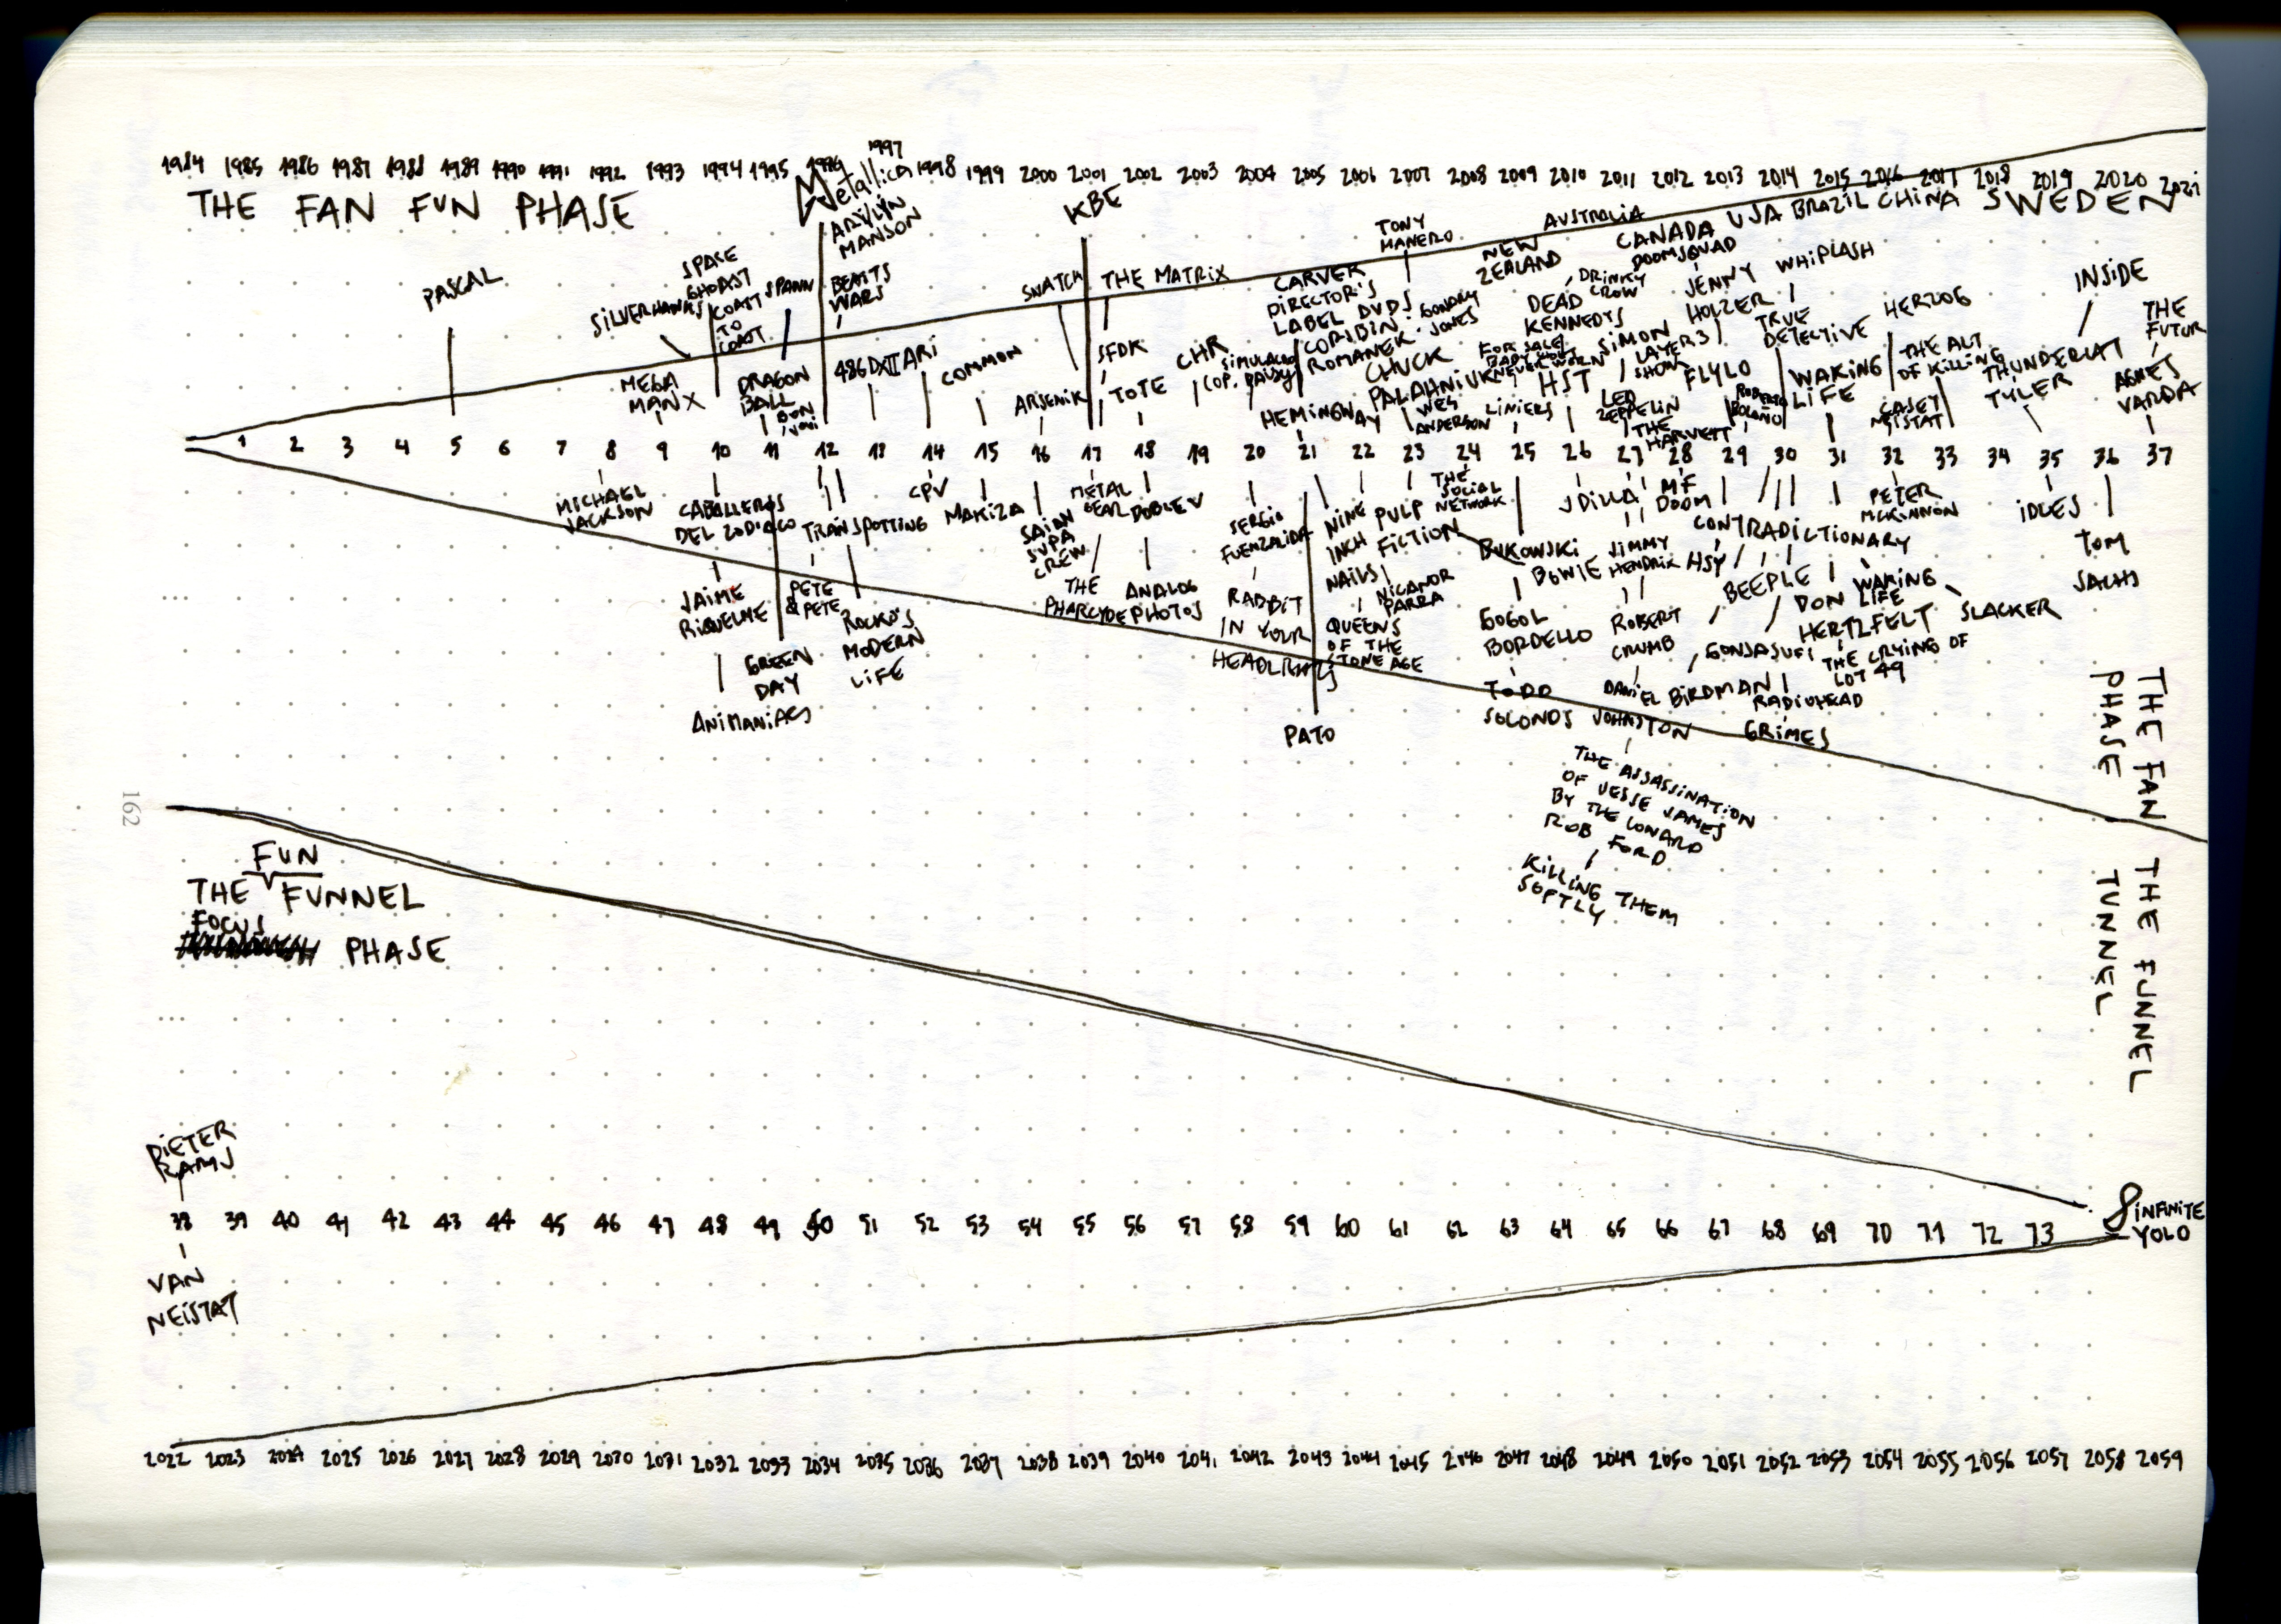 1984 1985 1986 1987 1988 1989 1990 1991 1992 1993 1994 1995 1996 1997 1998 1999 2000 2001 2002 2003 2004 2005 2006 2007 2008 2009 2010 2011 2012 2013 2014 2015 2016 2017 2018 2019 2020 2021
THE FAN FUN PHASE
Metallica
MARILYN
MANSON
BEASTS
WARS
KBE
TONY
MANERO
NEW
ZEALAND
AUSTRALIA
CANADA
USA
BRAZIL
CHINA
SWEDEN
PASCAL
SILVERHAWKS
SPACE
GHOAST
COAST
TO
COAST
SPAWN
MEGA
MAN X
DRAGON
BALL
BON
JOVI
486DXII
ARI
COMMON
SNATCH
THE MATRIX
ARSENIK
SFDK
TOTE
CHR
SIMULACRO
COP.
CARVER
DIRECTOR'S
LABEL DVDS
CORIBIN.
ROMANEK.
GONDRY
JONES
HEMINGWAY
CHUCK
PALAHNIUK
WES
ANDERSON
DEAD
KENNEDYS
DRINKY
CROW
FOR SALE
BABY SHOES
NEVER WORN
HST
LINIERS
DOOMSQUAD
SIMON
LAYERS
SHOW
LED
ZEPPELIN
THE
HARVEST
JENNY
HOLZER
FLYLO
WHIPLASH
TRUE
DETECTIVE
ROBERTO
BOLAÑO
WAKING
LIFE
HERZOG
THE ACT
OF KILLING
CASEY
NEISTAT
THUNDERCAT
TYLER
INSIDE
THE
FUTUR
AGNES
VARDA
1 2 3 4 5 6 7 8 9 10 11 12 13 14 15 16 17 18 19 20 21 22 23 24 25 26 27 28 29 30 31 32 33 34 35 36 37
MICHAEL
JACKSON
CABALLEROS
DEL ZODIACO
JAIME
RIQUELME
ANIMANIACS
GREEN
DAY
TRAINSPOTTING
PETE
& PETE
ROCKO'S
MODERN
LIFE
CPV
MAKIZA
SAIAN
SUPA
CREW
METAL
GEAR
THE
PHARCYDE
DOBLE V
ANALOG
PHOTOS
SERGIO
FUENZALIDA
RABBIT
IN YOUR
HEADLIGHTS
PATO
NINE
INCH
NAILS
QUEENS
OF THE
STONE AGE
PULP
FICTION
NICANOR
PARRA
THE
SOCIAL
NETWORK
BUKOWSKI
GOGOL
BORDELLO
TODD
SOLONDS
J DILLA
BOWIE
JIMMY
HENDRIX
ROBERT
CRUMB
DANIEL
JOHNSTON
THE ASSASSINATION
OF JESSE JAMES
BY THE COWARD
ROB FORD
KILLING THEM
SOFTLY
MF
DOOM
CONTRADICTIONARY
HSY
BEEPLE
GONJASUFI
BIRDMAN
RADIOHEAD
GRIMES
DON
HERTZFELT
WAKING
LIFE
THE CRYING OF
LOT 49
PETER
MCKINNON
SLACKER
IDLES
TOM
SACHS
THE FAN
PHASE
THE FUNNEL
TUNNEL
162
FUN
THE FUNNEL
FOCUS
PHASE
DIETER
RAMS
38 39 40 41 42 43 44 45 46 47 48 49 50 51 52 53 54 55 56 57 58 59 60 61 62 63 64 65 66 67 68 69 70 71 72 73
INFINITE
YOLO
VAN
NEISTAT
2022 2023 2024 2025 2026 2027 2028 2029 2030 2031 2032 2033 2034 2035 2036 2037 2038 2039 2040 2041 2042 2043 2044 2045 2046 2047 2048 2049 2050 2051 2052 2053 2054 2055 2056 2057 2058 2059